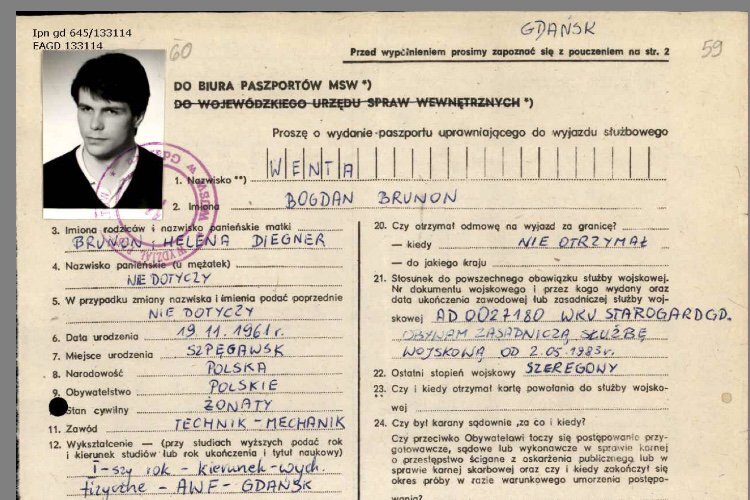 Ipn gd 645/133114
EAGD 133114
60
GDAŃSK
59
Przed wypełnieniem prosimy zapoznać się z pouczeniem na str. 2
DO BIURA PASZPORTÓW MSW *)
DO WOJEWÓDZKIEGO URZĘDU SPRAW WEWNĘTRZNYCH *)
Proszę o wydanie paszportu uprawniającego do wyjazdu służbowego
1. Nazwisko **) WENTA
2. Imiona BOGDAN BRUNON
3. Imiona rodziców i nazwisko panieńskie matki
BRUNON i HELENA DIEGNER
4. Nazwisko panieńskie (u mężatek)
NIE DOTYCZY
5. W przypadku zmiany nazwiska i imienia podać poprzednie
NIE DOTYCZY
6. Data urodzenia 19.11.1961r.
7. Miejsce urodzenia SZPĘGAWSK
8. Narodowość POLSKA
9. Obywatelstwo POLSKIE
Stan cywilny ŻONATY
11. Zawód TECHNIK-MECHANIK
12. Wykształcenie — (przy studiach wyższych podać rok
i kierunek studiów lub rok ukończenia i tytuł naukowy)
I-szy rok - kierunek - wych.
fizyczne - AWF - GDAŃSK
20. Czy otrzymał odmowę na wyjazd za granicę?
— kiedy NIE OTRZYMAŁ
— do jakiego kraju
21. Stosunek do powszechnego obowiązku służby wojskowej.
Nr dokumentu wojskowego i przez kogo wydany oraz
data ukończenia zawodowej lub zasadniczej służby woj-
skowej AD 0027180 WKU STAROGARD GD.
ODBYWAM ZASADNICZĄ SŁUŻBĘ
WOJSKOWĄ OD 2.05.1983r.
22. Ostatni stopień wojskowy SZEREGOWY
23. Czy i kiedy otrzymał kartę powołania do służby wojsko-
wej
24. Czy był karany sądownie, za co i kiedy?
Czy przeciwko Obywatelowi toczy się postępowanie przy-
gotowawcze, sądowe lub wykonawcze w sprawie karnej
o przestępstwo ścigane z oskarżenia publicznego, lub w
sprawie karnej skarbowej oraz czy i kiedy zakończył się
okres próby w razie warunkowego umorzenia postępo-
wania?